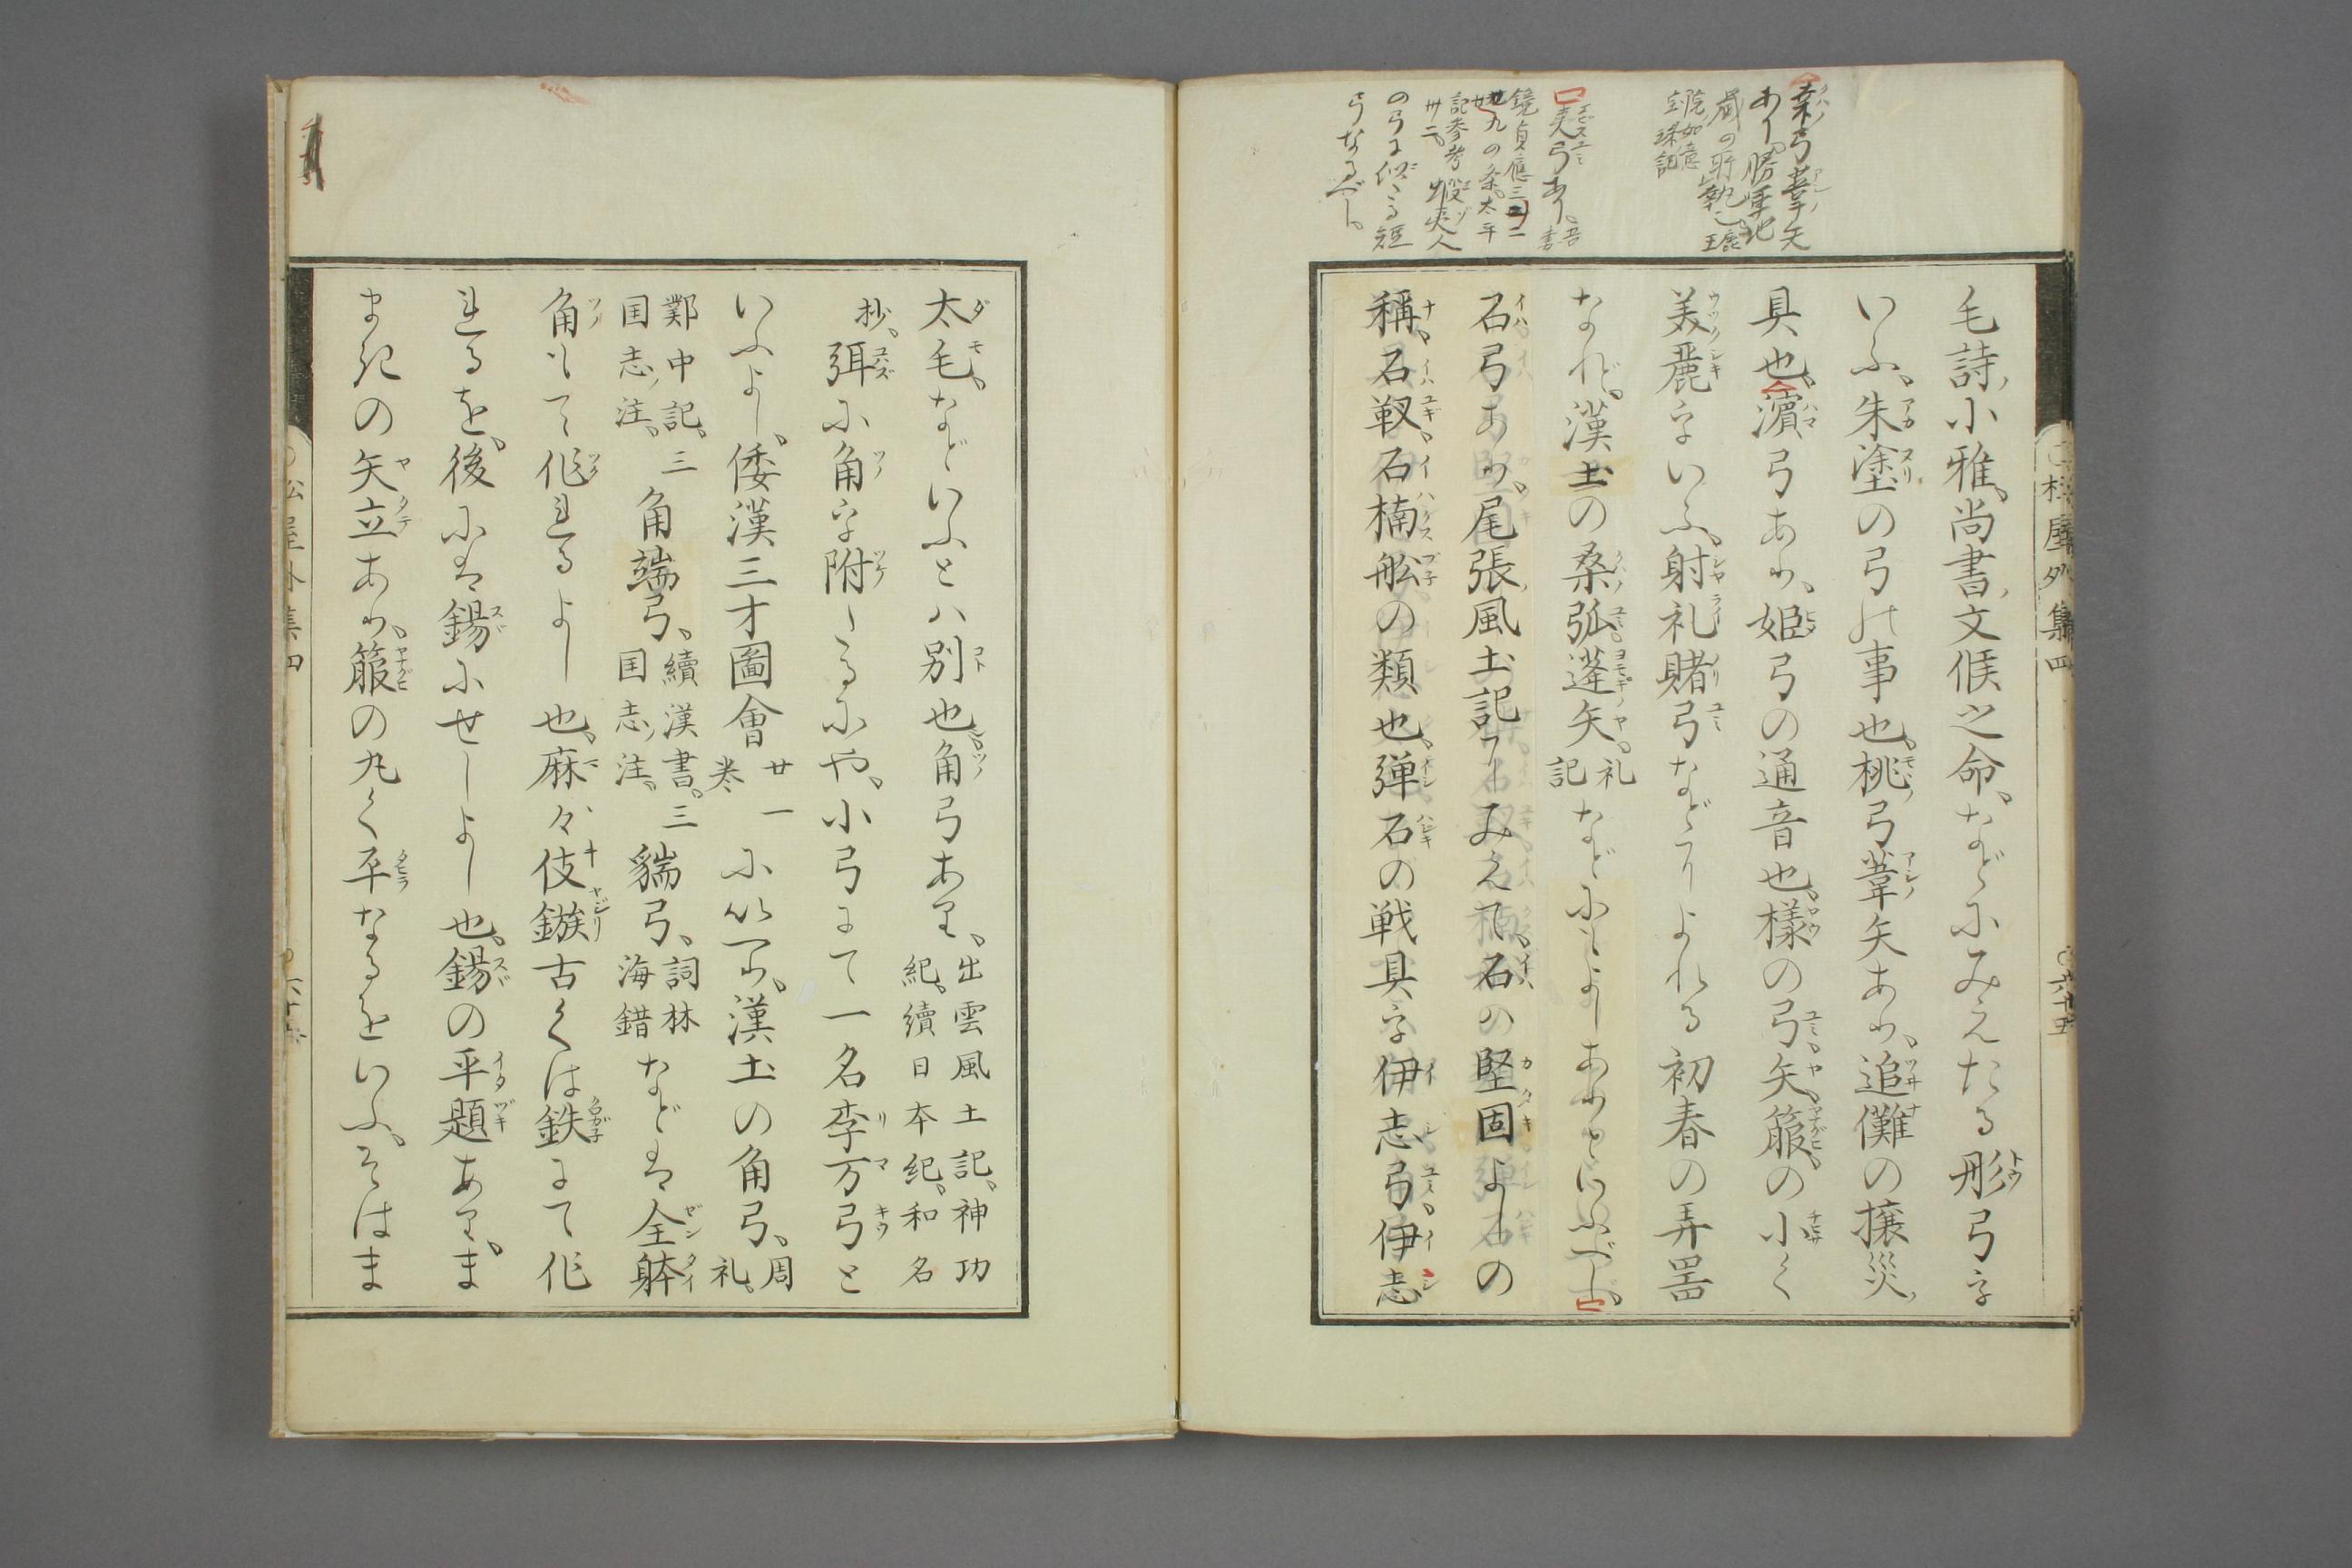 桒弓葦矢
あり、勝軍地
蔵の所執こ
夷弓あり、吾
鏡貞應三
廿九の条、太平
記参考蝦夷人
卅二、
の弓に似たる短
弓なるべし、
毛詩ノ小雅、尚書ノ文侯之命、などにみえたる彤弓を
いふ、朱塗の弓の事也、桃ノ弓葦矢あり、追儺の攘災ノ
具也、濵弓あり、姫弓の通音也、樣の弓矢、箙の小く
美麗をいふ、射礼賭弓などうりよれる初春の弄噐
なれど、漢土の桑弧蓬矢、礼記などにもよしありといふべし、
石弓あり、尾張ノ風土記にみえて、石の堅固よしの
稱、石靫石楠舩の類也、弾石の戦具を伊志弓、伊志
松屋外集四
六十五
太毛、などいふとハ別也、角弓あり、出雲風土記、神功紀、續日本紀、和名
抄、弭に角を附たるにや、小弓にて一名李万弓と
いふよし、倭漢三才圖會廿一巻に以へり、漢土の角弓、周礼、
鄴中記、三国志ノ注、角端弓、續漢書、三国志ノ注、貒弓、詞林海錯などは全躰
角もて作れるよし也、麻々伎鏃古くは鉄にて作
れるを、後には錫にせしよし也、錫の平題あり、ま
ま紀の矢立あり、箙の丸く平なるをいふ、そはま
松屋外集四